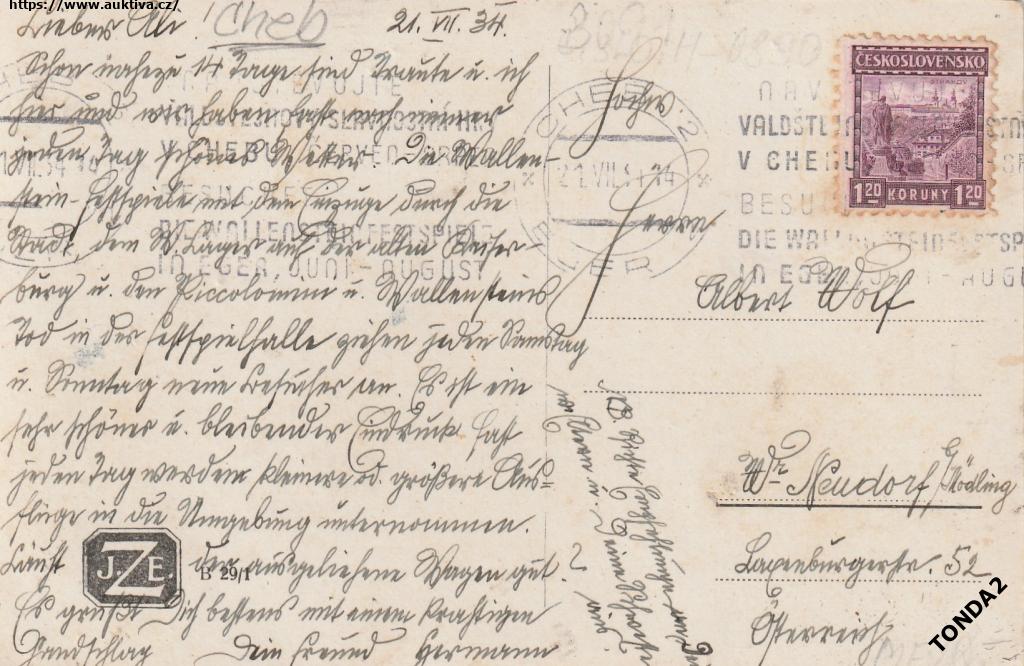 https://www.auktiva.cz/
Lieber Ali! Cheb 21. VII. 34.
Schon nahezu 14 Tage sind Traute u. ich
hier und wir haben fast noch immer
jeden Tag schönes Wetter. Die Wallen-
stein-Festspiele mit dem Einzuge durch die
Stadt, dem W. Lager auf der alten Kaiser-
burg u. den Piccolomini u. Wallensteins
Tod in der Festspielhalle ziehen jeden Samstag
u. Sonntag neue Besucher an. Es ist ein
sehr schöner u. bleibender Eindruck. Fast
jeden Tag werden kleinere od. größere Aus-
flüge in die Umgebung unternommen.
Läuft der ausgeliehene Wagen gut?
Es grüßt Dich bestens mit einem kräftigen
Handschlag Dein Freund Hermann
JZE
B 29/1
ČESKOSLOVENSKO
1·20 KORUNY 1·20
CHEB 2
21.VII.34 14
EGER
V CHEBU
BESUCHET
DIE WALLENSTEINFESTSPIELE
IN EGER, JUNI - AUGUST
VALDŠTE
V CHEBU
BESU
DIE WALLENSTEINFESTSP
IN EGER, JUNI - AUGU
Herrn
Albert Wolf
Wr. Neudorf/Mödling
Laxenburgerstr. 52
Österreich
TONDA2